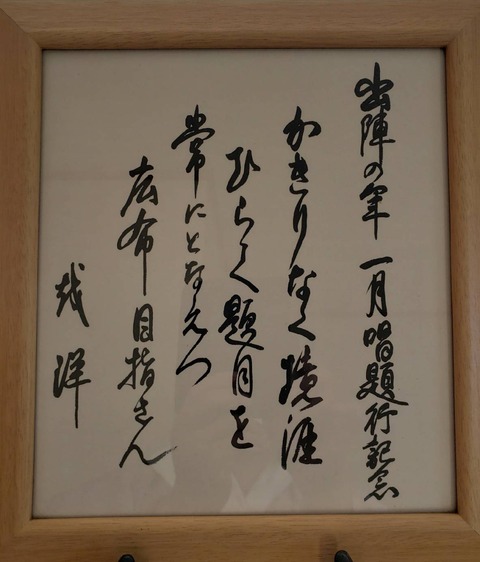 出陣の年 一月唱題行記念
かきりなく境涯
ひらく題目を
常にとなえつ
広布目指さん
茂洋